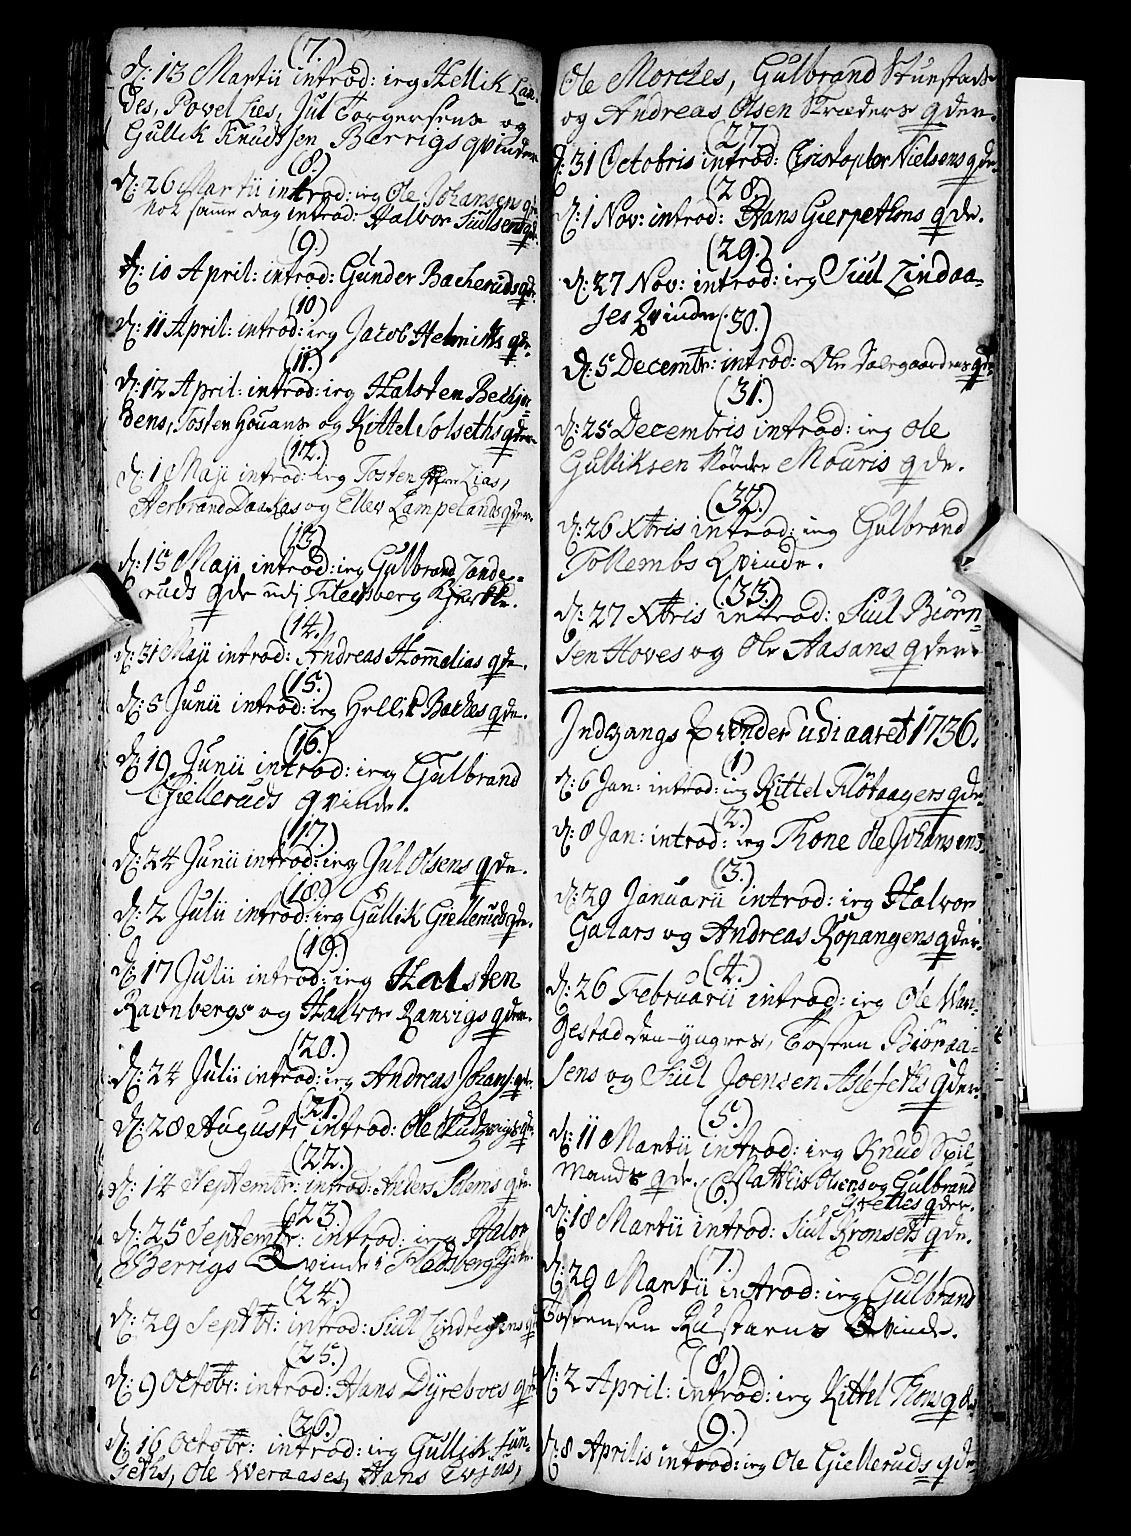 (7.)
d: 13 Martii introd: ieg Hellik Lan-
des, Povel Lies, Jul Torgersens og
Gullik Knudtsen Berrigs qvinder
(8.)
d: 26 Martii introd: ieg Ole Johansen q
Nok samme dag introd: Halvor Juulsens qde.
(9.)
d: 10 April: introd: Gunder Bacheruds qde.
(10)
d: 11 April: introd: ieg Jacob Helmichs qde.
(11.)
d: 12 April: introd: ieg Halsten Beckje-
dens, Tosten Houans og Kittel Solseths qder
(12.)
d: 1 Maji introd: ieg Tosten Lias,
Herbrand Daakas og Ellev Lampelands qder.
(13)
d: 15 Maji introd: ieg Gulbrand Tande-
ruds qde udi Flesberg Kircke.
(14.)
d: 31 Maji introd: Andreas Hommelias qde.
(15.)
d: 5 Junii introd: ieg Hellik Backes qde.
(16.)
d: 19 Junii introd: ieg Gulbrand
Gielleruds qvinde.
(17)
d: 24 Junii introd: ieg Jul Olsens qde.
(18.)
d: 2 Julii introd: ieg Gullik Gielleruds qde.
(19.)
d: 17 Julii introd: ieg Halsten
Ravnbergs og Halvor Ranvigs qder.
(20.)
d: 24 Julii introd: ieg Andreas Johans: qde
(21.)
d: 28 Augusti introd: Ole Ludwigs qde
(22.)
d: 14 Septembr: introd: Anders Moens qde
(23.)
d: 25 Septembr: introd: ieg Halvor
Berrigs Qvinde i Flesberg Kirke
(24.)
d: 29 Septbr: introd: Juul qde
(25.)
d: 9 Octobr: introd: Hans Dyreboes qde
(26.)
d: 16 Octobr: introd: ieg Gullik Fun-
seths, Ole Weraases, Hans Evjus,
Ole Morches, Gulbrand Stuestads
og Andreas Olsen Skræders qder.
(27.)
d: 31 Octobris introd: Christopher Nielsens qde
(28.)
d: 1 Nov: introd: Hans Gierpethons qde.
(29.)
d: 27 Nov: introd: ieg Juul Lindaa-
ses Qvinde.
(30.)
d: 5 Decembr: introd: Ole Dalegaardens qde
(31.)
d: 25 Decembris introd: ieg Ole
Gulliksen Nordre Mouris qde.
(32.)
d: 26 Xbris introd: ieg Gulbrand
Tollembs Qvinde.
(33.)
d: 27 Xbris introd: Juul Biørn-
sen Hoves og Ole Aasans qder.
Indgangs Qvinder udi aaret 1736.
(1)
d: 6 Jan: introd: ieg Kittel Flötaagers qde.
(2.)
d: 8 Jan: introd: ieg Thone Ole Johansens.
(3.)
d: 29 Januarii introd: ieg Halvor
Galaas og Andreas Kopangens qder.
(4.)
d: 26 Februarii introd: ieg Ole Wan-
gestad den yngres, Tosten Biöraa-
sens og Juul Joensen Aslefeths qder.
(5.)
d: 11 Martii introd: ieg Knud Spil-
mands qde. Mathis Olsens og Gulbrand
Grettes qder.
(6.)
d: 18 Martii introd: Juul Kronseths qde.
(7.)
d: 29 Martii introd: ieg Gulbrand
Tostensen Rustaens Qvinde.
(8.)
d: 2 April: introd: ieg Kittel Thons qde
(9.)
d: 8 Aprilis introd: ieg Ole Gielleruds qde